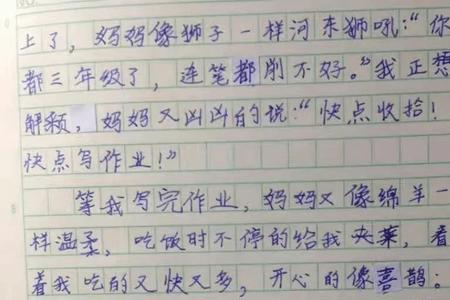 上了，妈妈像狮子一样河东狮吼：“你
都三年级了，连笔都削不好。”我正想
解释，妈妈又凶凶的说：“快点收拾！
快点写作业！”
等我写完作业，妈妈又像绵羊一
样温柔，吃饭时不停的给我夹菜，看
着我吃的又快又多，开心的像喜鹊：